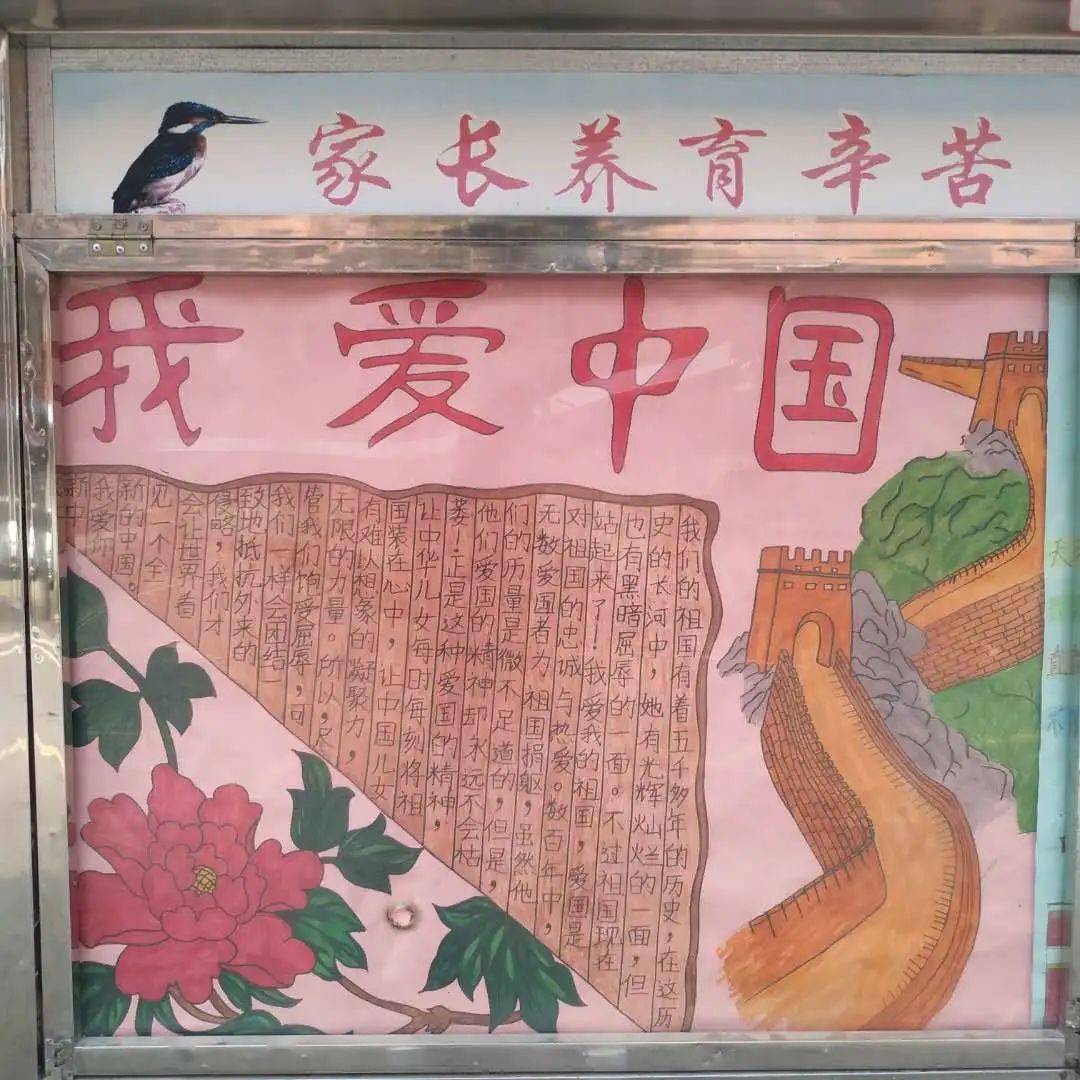 家长养育辛苦
我爱中国
我们的祖国有着五千多年的历史,在这历
史的长河中,她有光辉灿烂的一面,但
也有黑暗屈辱的一面。不过祖国现在
站起来了!我爱我的祖国,爱国是
对祖国的忠诚与热爱。数百年中,
无数爱国者为祖国捐躯,虽然他
们的历量是微不足道的,但是,
他们爱国的精神却永远不会枯
萎!正是这种爱国的精神,
让中华儿女每时每刻将祖
国装在心中,让中国儿女
有难以想象的凝聚力,
无限的力量。所以,尽
管我们饱受屈辱,可
我们一样会团结一
致地抵抗外来的
侵略,我们才
会让世界看
见一个全
新的中国。
我爱你
新中